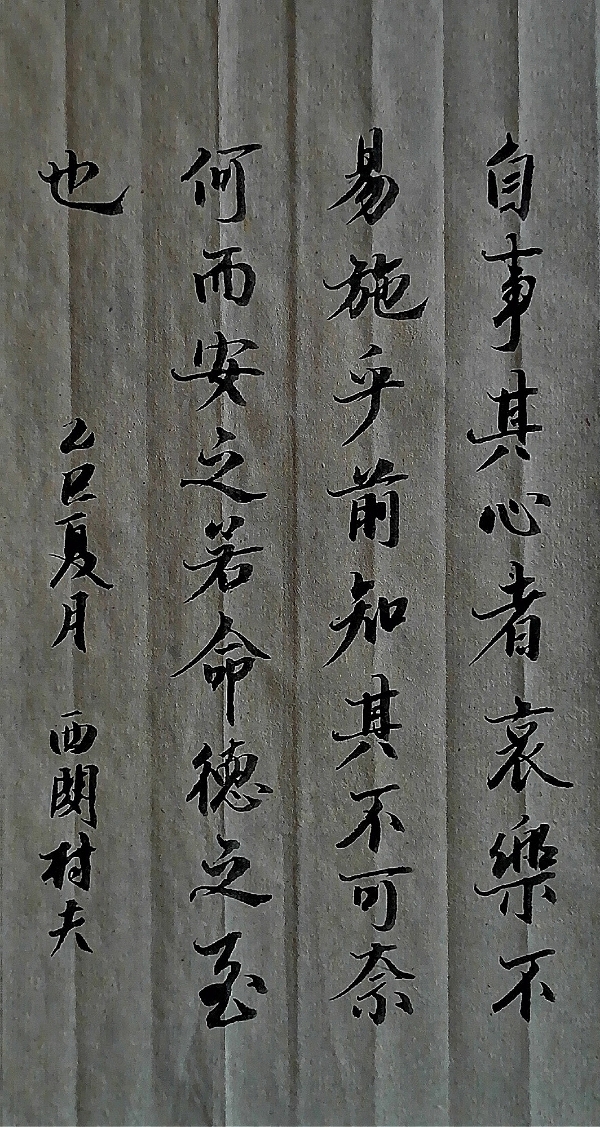 自事其心者哀樂不
易施乎前知其不可奈
何而安之若命德之至
也
乙巳夏月 西閣村夫